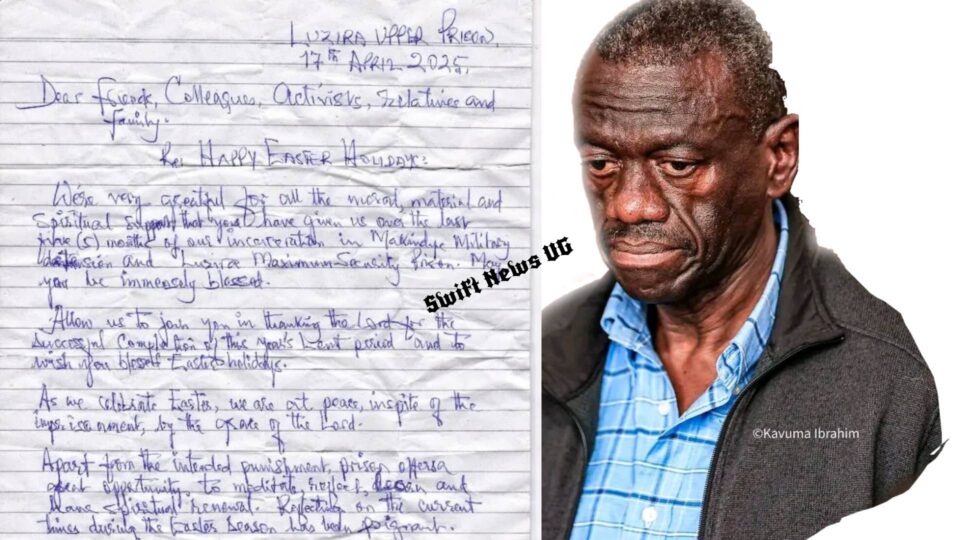 LUZIRA UPPER PRISON,
17TH APRIL 2025.
Dear friends, Colleagues, Activists, relatives and
family.
Re: HAPPY EASTER HOLIDAY:
We're very grateful for all the moral, material and
Spiritual support that you have given us over the last
five (5) months of our incarceration in Makindye Military
detension and Luzira Maximum-Security Prison. May
you be immensely blessed.
Allow us to join you in thanking the Lord for the
successful completion of this year's Lent period and to
wish you blessed Easter holidays.
As we celebrate Easter, we are at peace, inspite of the
imprisonment, by the grace of the Lord.
Apart from the intended punishment, prison offers a
great opportunity to meditate, reflect, and
spiritual renewal. Reflecting on the current
times during the Easter Season has been poignant.
Swift News UG
©Kavuma Ibrahim